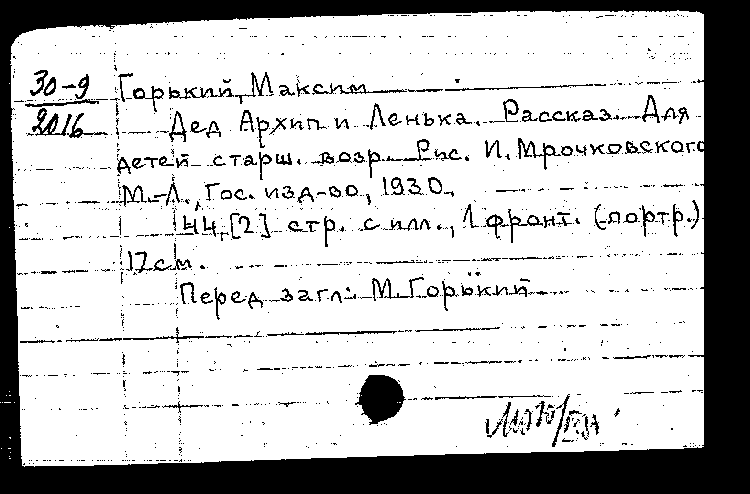 30-9
2016
Горький, Максим
Дед Архип и Ленька. Рассказ. Для
детей старш. возр. Рис. И. Мрочковского
М.-Л., Гос. изд-во, 1930.
44, [2] стр. с илл., 1 фронт. (портр.)
17 см.
Перед загл: М. Горький